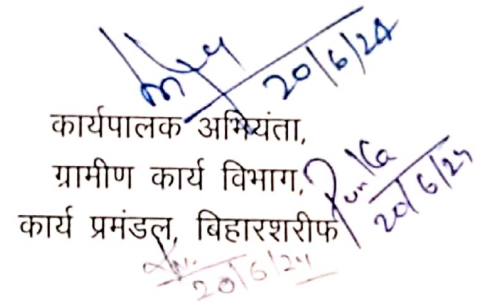 20/6/24
कार्यपालक अभियंता,
ग्रामीण कार्य विभाग,
कार्य प्रमंडल, बिहारशरीफ
20/6/24
20/6/24